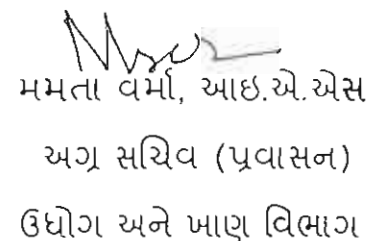 મમતા વર્મા, આઇ.એ.એસ
અગ્ર સચિવ (પ્રવાસન)
ઉધોગ અને ખાણ વિભાગ